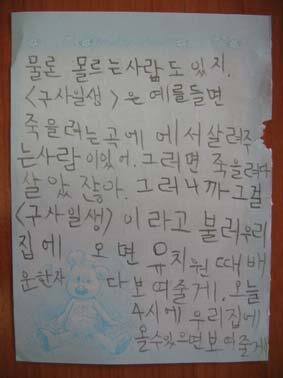 물론 몰르는사람도있지.
<구사일생>은 예를들면
죽을러는곡에 에서살려주
는사람이있어. 그러면 죽을려다
살았잖아. 그러니까그걸
<구사일생>이라고 불러우리
집에 오면 유치원때배
운한자 다보여줄게. 오늘
4시에우리집에
올수있으면보여줄게